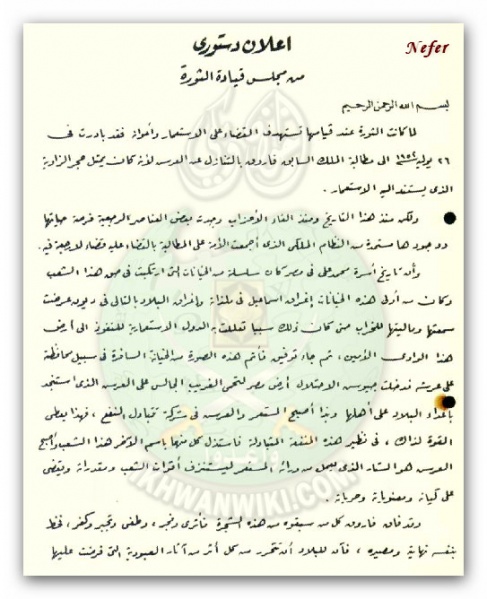 Nefer
اعلان دستورى
من مجلس قيادة الثورة
بسم الله الرحمن الرحيم
لما كانت الثورة عند قيامها تستهدف القضاء على الاستعمار وأعوانه فقد بادرت فى
٢٦ يوليه ١٩٥٢ الى مطالبة الملك السابق فاروق بالتنازل عن العرش لأنه كان يمثل حجر الزاوية
الذى يستند اليه الاستعمار .
ولكن منذ هذا التاريخ ومنذ الغاء الأحزاب وجدت بعض العناصر الرجعية فرصة حياتها
ووجودها مستمدة من النظام الملكى الذى أجمعت الأمة على المطالبة بالقضاء عليه قضاء لا رجعة فيه.
وأن تاريخ أسرة محمد على فى مصر كان سلسلة من الخيانات التى ارتكبت فى حق هذا الشعب
وكان من أولى هذه الخيانات إغراق اسماعيل فى ملذاته وإغراق البلاد بالتالى فى ديون عرضت
سمعتها وماليتها للخراب حتى كان ذلك سببا تعللت به الدول الاستعمارية للنفوذ الى أرض
هذا الوادى الأمين ، ثم جاء توفيق فأتم هذه الصورة من الخيانة السافرة فى سبيل محافظته
على عرشه فدخلت جيوش الاحتلال أرض مصر لتحمى الغريب الجالس على العرش الذى استنجد
بأعداء البلاد على أهلها وبذا أصبح المستعمر والعرش فى شركة تتبادل النفع ، فهذا يعطى
القوة لذاك ، فى نظير هذه المنفعة المتبادلة فاستذل كل منهما باسم الآخر هذا الشعب وأصبح
العرش هو الستار الذى يعمل من ورائه المستعمر ليستنزف أقوات الشعب ومقدراته ويقضى
على كيانه ومعنوياته وحرياته .
وقد فاق فاروق كل من سبقوه من هذه الشجرة فأثرى وفجر ، وطغى وتجبر وكفر ، فخط
بنفسه نهايته ومصيره ، فآن للبلاد أن تتحرر من كل أثر من آثار العبودية التى فرضت عليها
IKHWANWIKI.COM